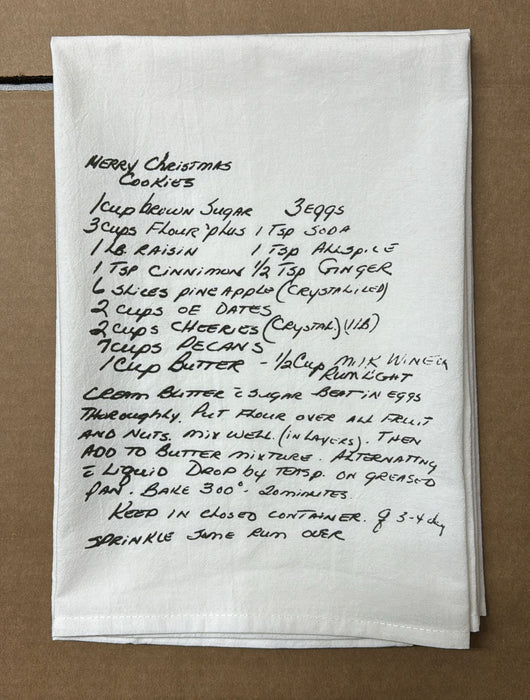 MERRY CHRISTMAS
COOKIES
1 CUP BROWN SUGAR 3 EGGS
3 CUPS FLOUR PLUS 1 TSP SODA
1 LB. RAISIN 1 TSP ALLSPICE
1 TSP CINNIMON 1/2 TSP GINGER
6 SLICES PINEAPPLE (CRYSTALIZED)
2 CUPS OF DATES
2 CUPS CHEERIES (CRYSTAL) (1 LB)
7 CUPS PECANS
1 CUP BUTTER - 1/2 CUP MILK WINE
RUM LIGHT
CREAM BUTTER c̄ SUGAR BEAT IN EGGS
THOROUGHLY. PUT FLOUR OVER ALL FRUIT
AND NUTS. MIX WELL. (IN LAYERS). THEN
ADD TO BUTTER MIXTURE. ALTERNATING
c̄ LIQUID DROP BY TEASP. ON GREASED
PAN. BAKE 300° - 20 MINUTES.
KEEP IN CLOSED CONTAINER. 3-4 day
SPRINKLE SOME RUM OVER